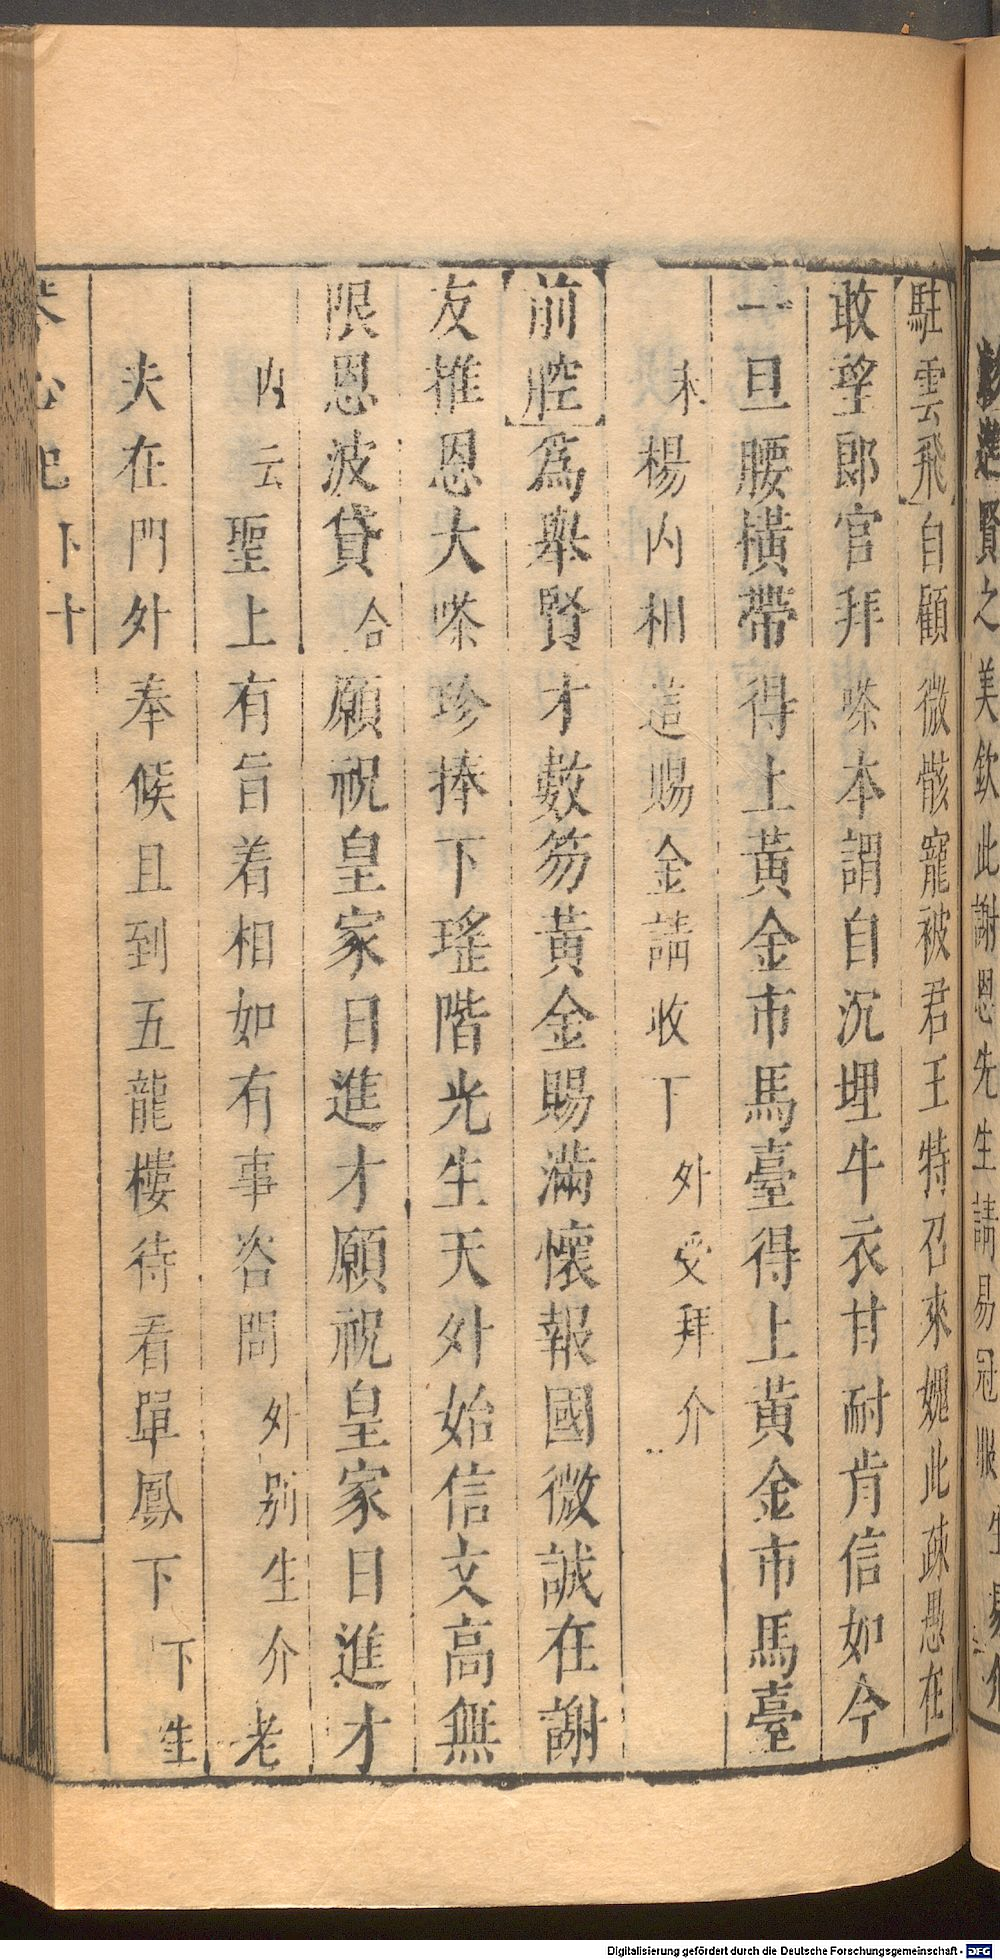 賢之美欽此謝恩先生請易冠服生易介
駐雲飛自顧微骸寵被君王特召來媿此疎愚在
敢望郎官拜嗏本謂自沉埋牛衣甘耐肯信如今
一旦腰橫帶得上黃金市馬臺得上黃金市馬臺
末楊内相這賜金請收下外受拜介
前腔爲舉賢才數笏黃金賜滿懷報國微誠在謝
友推恩大嗏珍捧下瑤階光生天外始信文高無
限恩波貸合願祝皇家日進才願祝皇家日進才
内云聖上有旨着相如有事咨問外别生介老
夫在門外奉候且到五龍樓待看單鳳下下生
琴心記下十
Digitalisierung gefördert durch die Deutsche Forschungsgemeinschaft - DFG